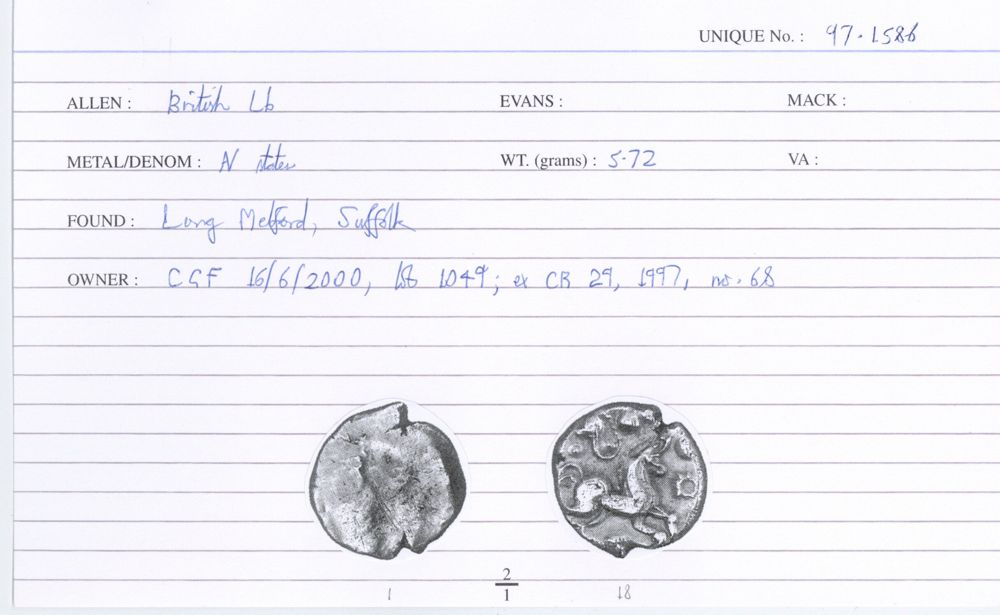 UNIQUE No. : 97.1586
ALLEN : British Lb EVANS : MACK :
METAL/DENOM : AV stater WT. (grams) : 5.72 VA :
FOUND : Long Melford, Suffolk
OWNER : CGF 16/6/2000, lot 1049; ex CR 29, 1997, no. 68
2
1
1 18